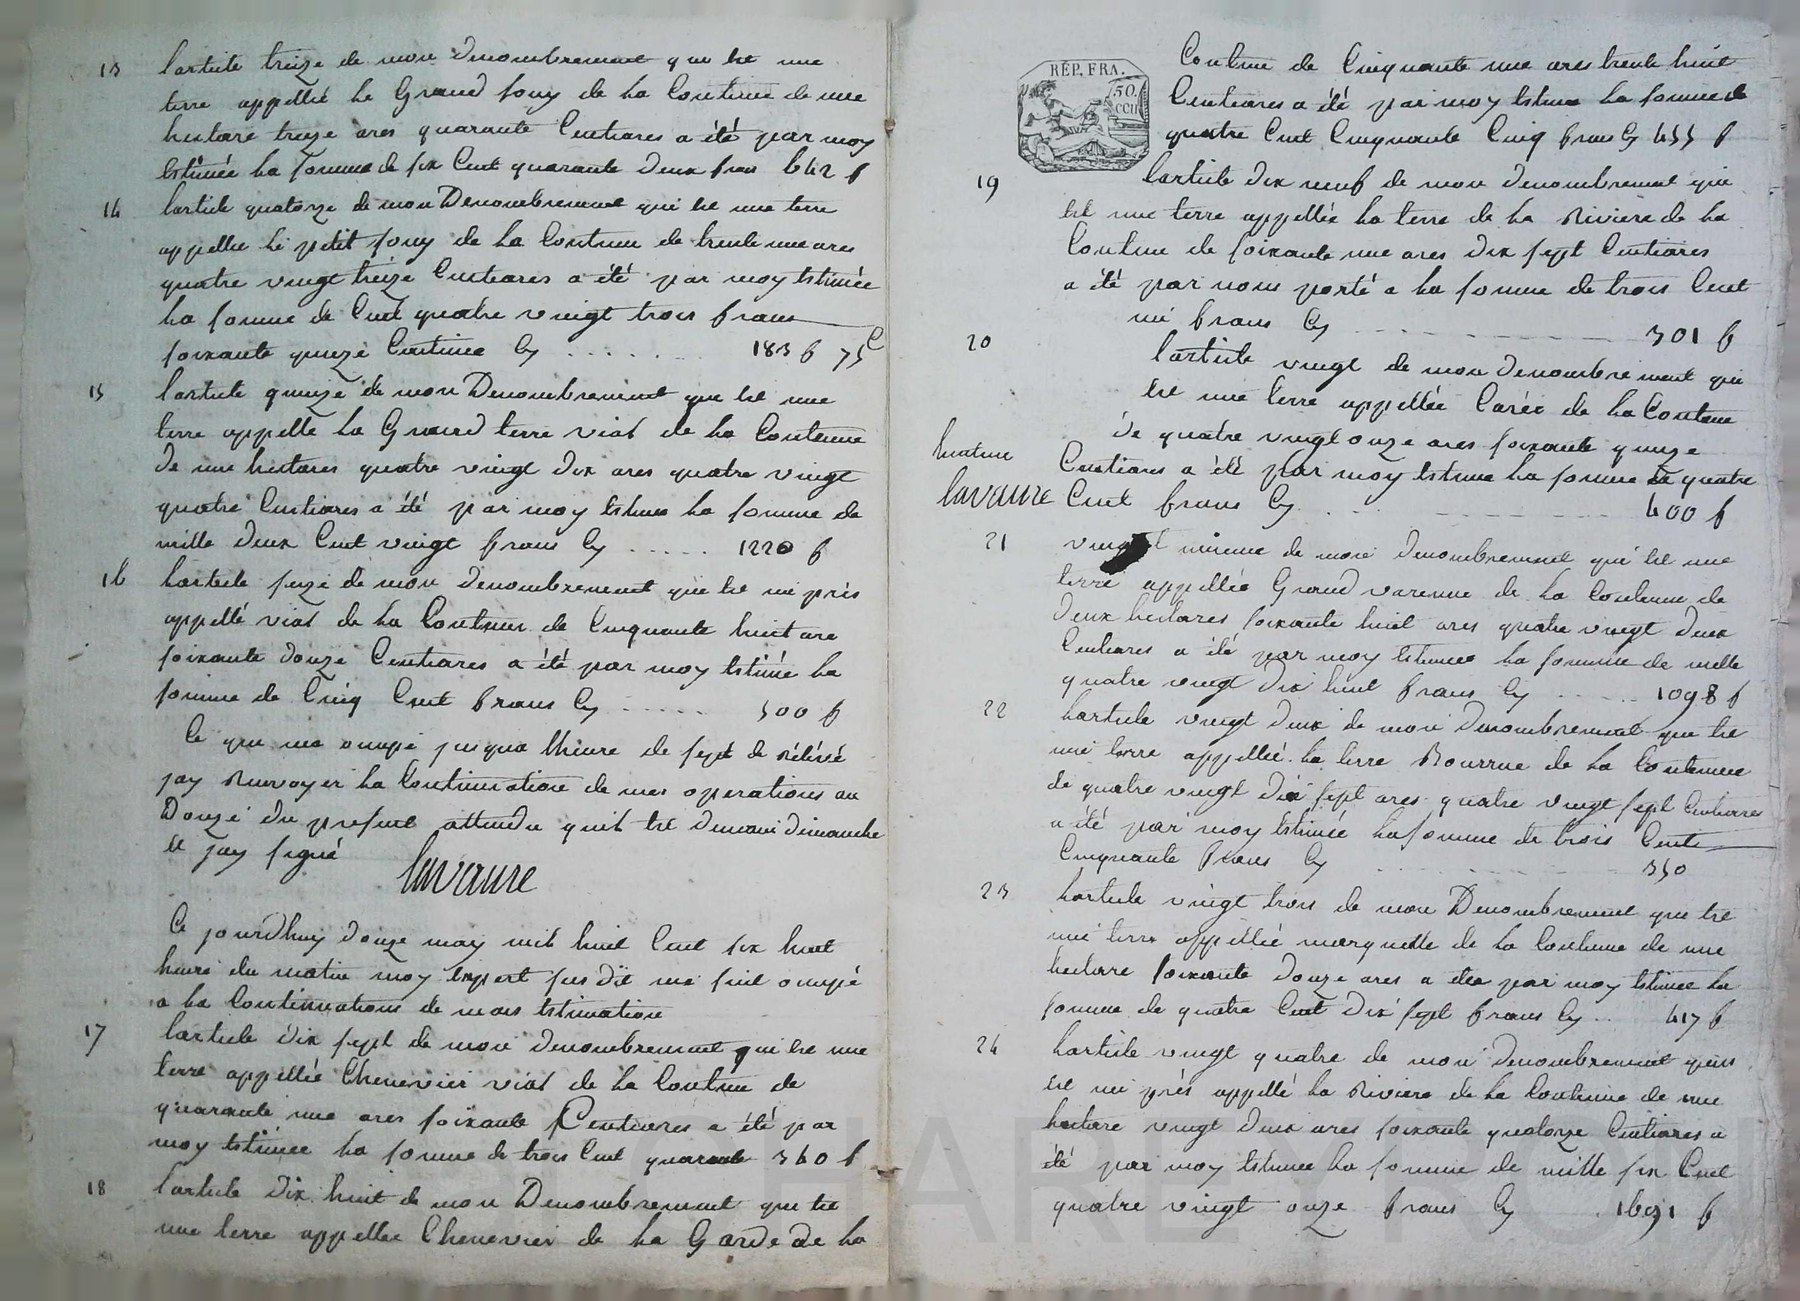 13 l'article treize de mon Denombrement que est une
terre appellée le Grand fouy de la Contenue de une
hectare treize ares quarante Centiares a été par moy
Estimée la somme de six Cent quarante deux fran 642 f
14 l'article quatorze de mon Denombrement qui est une terre
appellee le petit fouy de la Contenue de trente une ares
quatre vingt treize Centiares a été par moy Estimée
la somme de Cent quatre vingt trois frans
soixante quinze Centime Cy ....... 183 f 75 C
15 l'article quinze de mon Denombrement que est une
terre appelle la Grand terre vial de la Contenue
de une hectares quatre vingt dix ares quatre vingt
quatre Centiares a été par moy Estimee la somme de
mille deux Cent vingt frans Cy ..... 1220 f
16 l'article seize de mon denombrement qui est un près
appellé vial de la Contenue de Cinquante huit are
soixante douze Centiares a été par moy Estimé la
somme de Cinq Cent frans Cy ..... 500 f
Ce que ma occupé jusqua l'heure de sept de rélévé
jay Renvoyer la Continuation de mes operations au
Douze du present attendu quil est demain dimanche
et jay signé
lavaure
Ce jourdhuy douze may mil huit Cent six huit
heure du matin moy Expert susdit me suit occupé
a la Continuations de mais Estimation
17 l'article dix sept de mon denombrement qui est une
terre appellée Chenevier vial de la Contenue de
quarante une ares soixante Centiares a été par
moy Estimée la somme de trois Cent quarante 340 f
18 l'article dix huit de mon Denombrement que est
une terre appellee Chenevier de la Garde de la
RÉP. FRA.
50.
CEN
Contenue de Cinquante une ares trente huit
Centiares a été par moy Estimee la somme de
quatre Cent Cinquante Cinq frans Cy 455 f
19 l'article dix neuf de mon denombrement qui
est une terre appellée la terre de la Riviere de la
Contenue de soixante une ares dix sept Centiares
a été par nous porté a la somme de trois Cent
un frans Cy 301 f
20 l'article vingt de mon denombrement qui
est une terre appellée de la Contenue
de quatre vingt onze ares soixante quinze
Centiares a été par moy Estimee la somme de quatre
lavaure Cent frans Cy 400 f
21 vingt unieme de mon denombrement qui est une
terre appellée Grand varenne de la Contenue de
deux hectares soixante huit ares quatre vingt deux
Centiares a été par moy Estimee la somme de mille
quatre vingt dix huit frans Cy ..... 1098 f
22 l'article vingt deux de mon denombrement que est
une terre appellée la terre Bourrue de la Contenue
de quatre vingt dix sept ares quatre vingt sept Centiares
a été par moy Estimée la somme de trois Cent
Cinquante frans Cy 350
23 l'article vingt trois de mon Denombrement que est
une terre appellée marquette de la Contenue de une
hectare soixante douze ares a été par moy Estimee la
somme de quatre Cent dix sept frans Cy .. 417 f
24 l'article vingt quatre de mon denombrement qui
est un près appellé la Riviere de la Contenue de une
hectare vingt deux ares soixante quatorze Centiares a
été par moy Estimee la somme de mille six Cent
quatre vingt onze frans Cy 1691 f